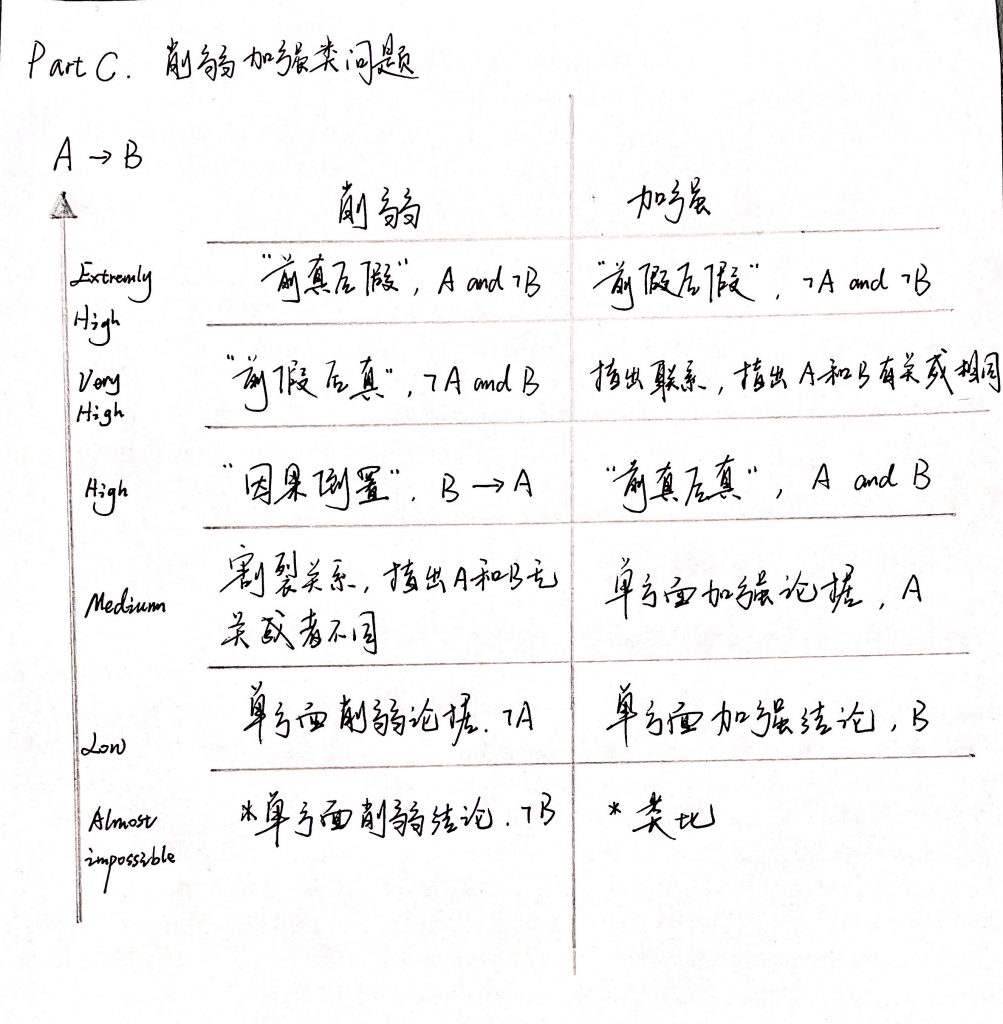 Part C. 削弱加强类问题
A → B
削弱 加强
Extremly High "前真后假", A and ¬B "前假后假", ¬A and ¬B
Very High "前假后真", ¬A and B 指出联系, 指出A和B有关或相同
High "因果倒置". B → A "前真后真", A and B
Medium 割裂关系, 指出A和B无 单方面加强论据, A
关或者不同
Low 单方面削弱论据. ¬A 单方面加强结论, B
Almost impossible *单方面削弱结论. ¬B * 类比